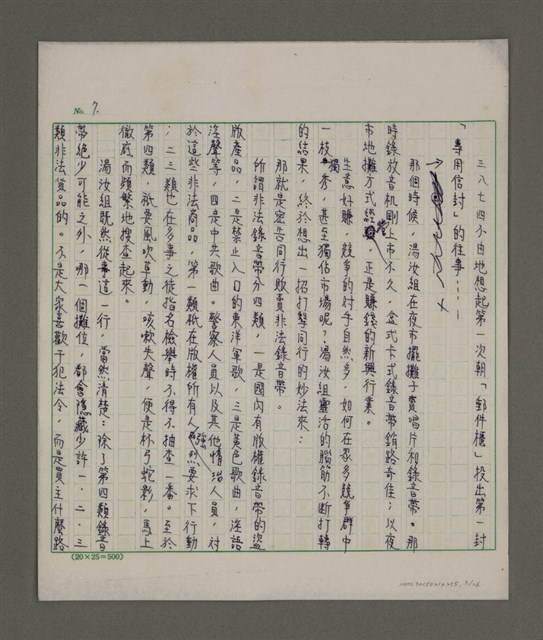 No. 7.
三八七四不由地想起第一次朝「郵件櫃」投出第一封
「專用信封」的往事……
那個時候,湯汝組在夜市擺攤子賣唱片和錄音帶。那
時錄放音机剛上市不久,盒式卡式錄音帶銷路奇佳;以夜
市地攤方式經營,正是賺錢的新興行業。
生意好賺,競爭的对手自然多,如何在眾多競爭群中
一枝獨秀,甚至獨佔市場呢?湯汝組靈活的腦筋不断打轉
的結果,終於想出一招打擊同行的妙法來:
那就是密告同行販賣非法錄音帶。
所謂非法錄音帶分四類,一是國內有版權錄音帶的盜
版產品,二是禁止入口的東洋軍歌,三是黃色歌曲,淫語
淫聲等,四是中共歌曲。警察人員以及其他情治人員,对
於這些非法商品,第一類祇在版權所有人強烈要求下行動
;二三類也在多事之徒指名檢舉時不得不抽查一番。至於
第四類,祇要風吹草動,咳嗽失聲,便是杯弓蛇影,馬上
徹底而頻繁地搜查起來。
湯汝組既然從事這一行,當然清楚:除了第四類錄音
帶絕少可能之外,哪一個攤位,都會隱藏少許一.二.三
類非法貨品的。不是大家喜歡干犯法令,而是買主什麼路
(20×25=500)